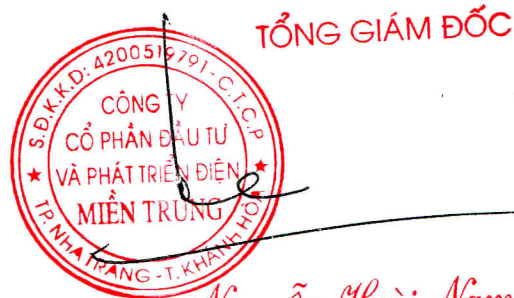 TỔNG GIÁM ĐỐC
S.Đ.K.K.D: 4200519791-C.T.C.P
CÔNG TY
CỔ PHẦN ĐẦU TƯ
VÀ PHÁT TRIỂN ĐIỆN
MIỀN TRUNG
TP. NHA TRANG - T. KHÁNH HÒA
Nguyễn Hoài Nam